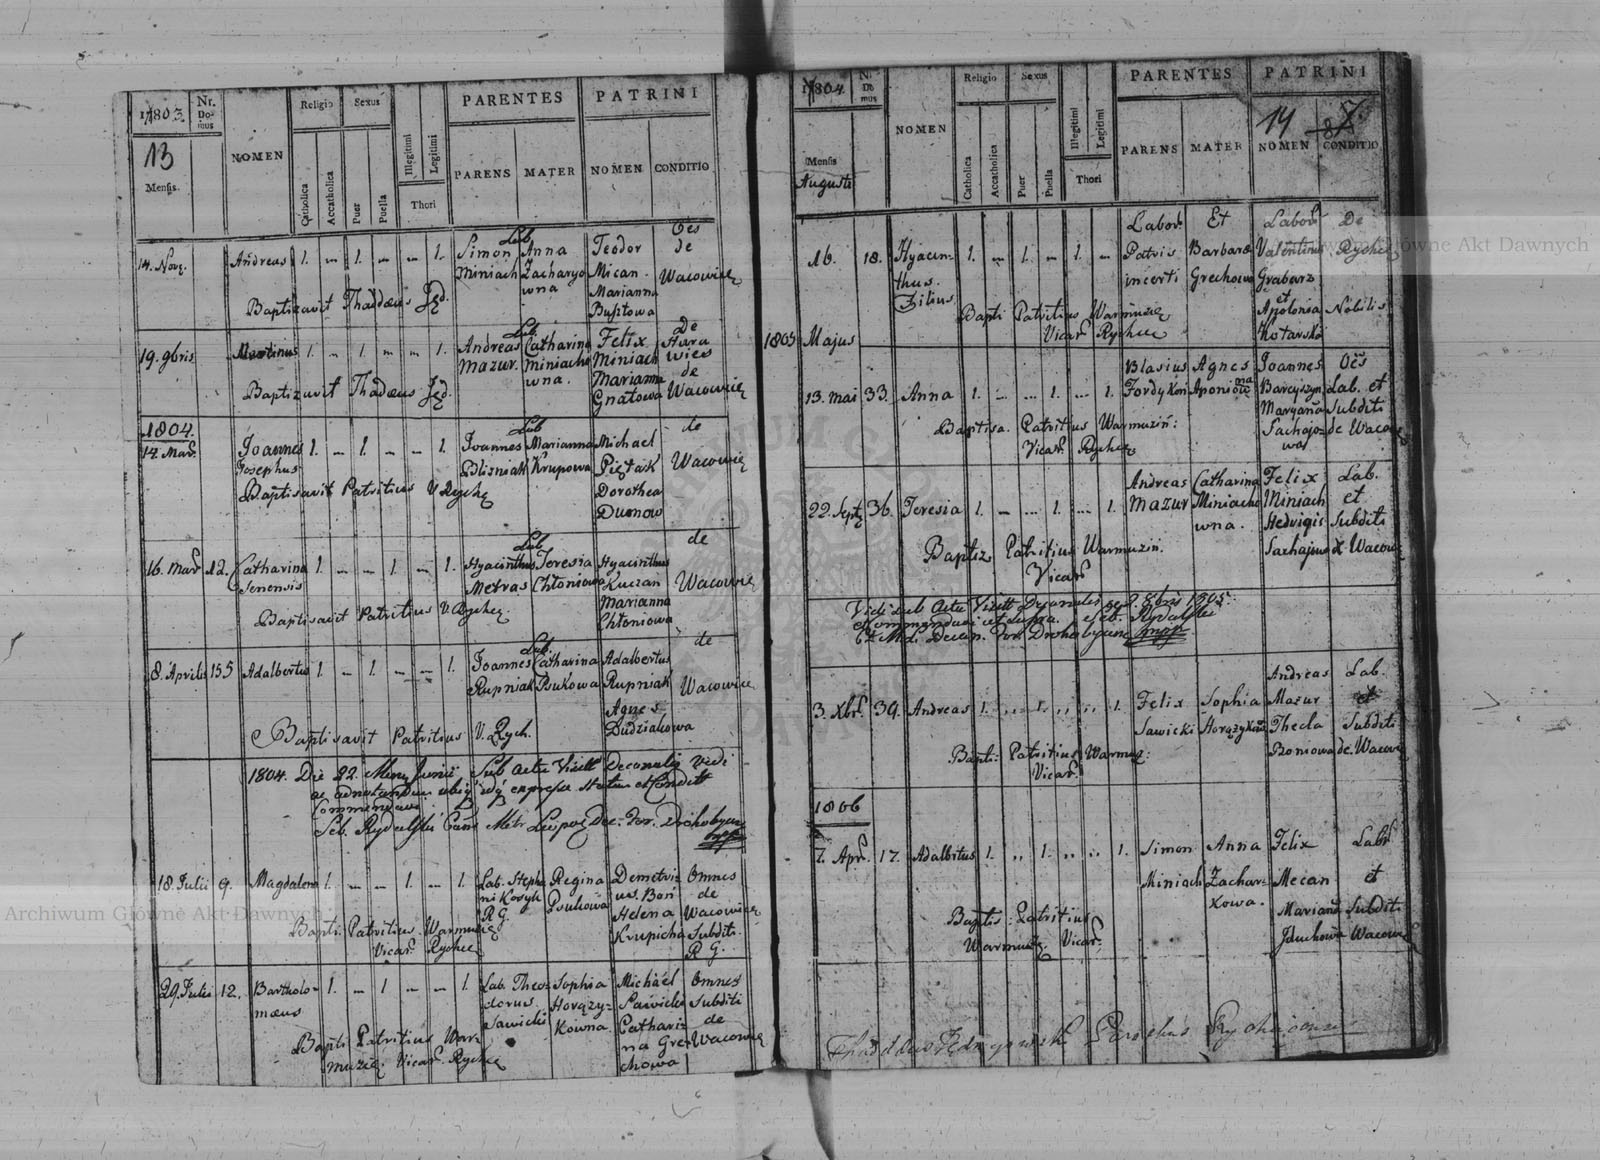 1803
Nr. Domus
NOMEN
Religio
Sexus
Catholica
Accatholica
Puer
Puella
Illegitimi
Legitimi
Thori
PARENTES
PARENS
MATER
PATRINI
NOMEN
CONDITIO
13
Mensis.
14. Nov.
Andreas 1. 1. 1.
Lab.
Simon Miniach
Anna Zacharyowna
Teodor Mican
Marianna
de Wacowice
Baptizavit Thaddaeus
19. 9bris
Martinus 1. 1. 1.
Lab.
Andreas Mazur
Catharina Miniachowna.
Felix Miniach
Marianna Gnatowa
De
de Wacowice
Baptizavit Thaddaeus
1804.
14. Mar.
Joannes Josephus 1. 1. 1.
Lab
Joannes Blizniak
Marianna Krupowa
Michael Piętak
Dorothea
de Wacowice
Baptisavit Patritius V. Rychc.
16. Mar. 12.
Catharina Senensis 1. 1. 1.
Lab.
Hyacinthus Metras
Teresia Chłoniowa
Hyacinthus Kuczan
Marianna Chłoniowa
de Wacowice
Baptisavit Patritius V. Rychc.
8. Aprilis 155
Adalbertus 1. 1. 1.
Lab.
Joannes Rupniak
Catharina
Adalbertus Rupniak
Agnes Dudziakowa
de Wacowice
Baptisavit Patritius V. Rych.
1804. Die 22. Mensis Junii Sub actu Visitt Decanalis Vidi
Commendavi
Seb. Rydulski Can. Metr. Leopol. Dec. For. Drohobycen
mpp
18. Julii 9.
Magdalena 1. 1. 1.
Lab. Stephani Kosyk R G.
Regina
Demetrius. Boń
Helena Krupicha
Omnes de Wacowice Subditi R G.
Bapti: Patritius Warmuzię
Vicar. Rychc
29. Julii 12.
Bartholomaeus 1. 1 1.
Lab. Theodorus. Sawicki
Sophia Horążykowna
Michael Sawicki
Catharina Grechowa
Omnes Subditi de Wacowice
Bapti Patritius Warmuzię. Vicar. Rychc
1804.
Nr. Domus
NOMEN
Religio
Sexus
Catholica
Accatholica
Puer
Puella
Illegitimi
Legitimi
Thori
PARENTES
PARENS
MATER
PATRINI
14
NOMEN
CONDITIO
Mensis
Auguste
16. 18.
Hyacinthus. Filius 1. 1. 1.
Labor. Patris incerti
Et Barbara Grechowa
Labor. Valentinus Grabarz
et Apolonia Kotarska
De Rychc
Nobilis
Bapti Patritius Warmuzię
Vicar Rychc
1805 Majus
13. Mai 33.
Anna 1. 1. 1.
Blasius
Agnes
Joannes
Maryana Sachajowa
Lab. et Subditi de Wacow
Baptisa. Patritius Warmuziń:
Vicar. Rychc
22. Sept 36.
Teresia 1. 1. 1.
Andreas Mazur
Catharina Miniachowna.
Felix Miniach
Hedvigis Sachajowa
Lab. et Subditi Wacow
Baptiz. Patritius Warmuziń.
Vicar
Vidi sub Actu Visitt Decanalis 8bris 1805.
et Commendavi ut supra. Seb. Rydulski
Decan. For. Drohobycens mpp
3. Xbr. 39.
Andreas 1. 1. 1.
Felix Sawicki
Sophia Horążykowna
Andreas Mazur
Thecla Boniowa
Lab. et Subditi de. Wacow
Bapti: Patritius Warmuz:
Vicar.
1806
7. Apr. 17.
Adalbitus 1. 1. 1.
Simon Miniach
Anna Zacharkowa.
Felix Mecan
Mariana
Labr. et Subditi Wacow
Baptis: Patritius
Warmuzię. Vicar.
Archiwum Główne Akt Dawnych
Archiwum Główne Akt Dawnych